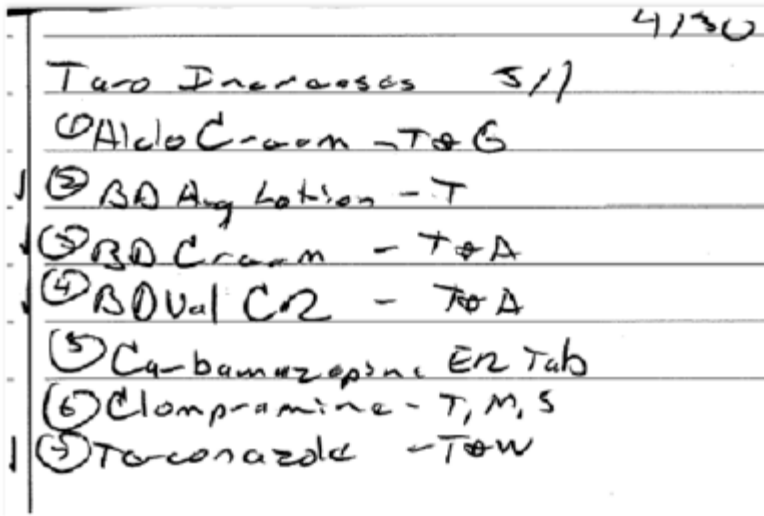 4/30
Taro Increases 5/1
① Aclo Cream - T & G
② BD Aug Lotion - T
③ BD Cream - T & A
④ BD Val CR - T & A
⑤ Carbamazepine ER Tab
⑥ Clompramine - T, M, S
⑦ Terconazole - T & W